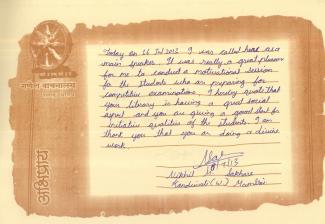 गणेश वाचनालय
अभिप्राय
Today on 26 Jul 2013 I was called here as a
main speaker. It was really a great pleasure
for me to conduct a motivational session
for the students who are preparing for
competitive examinations. I hereby quote that
your library is having a great social
aspect and you are giving a good start for
initiative qualities of the students. I am
thank you that you are doing a divine
work.
Nikhil
Kandivali (W) Mumbai